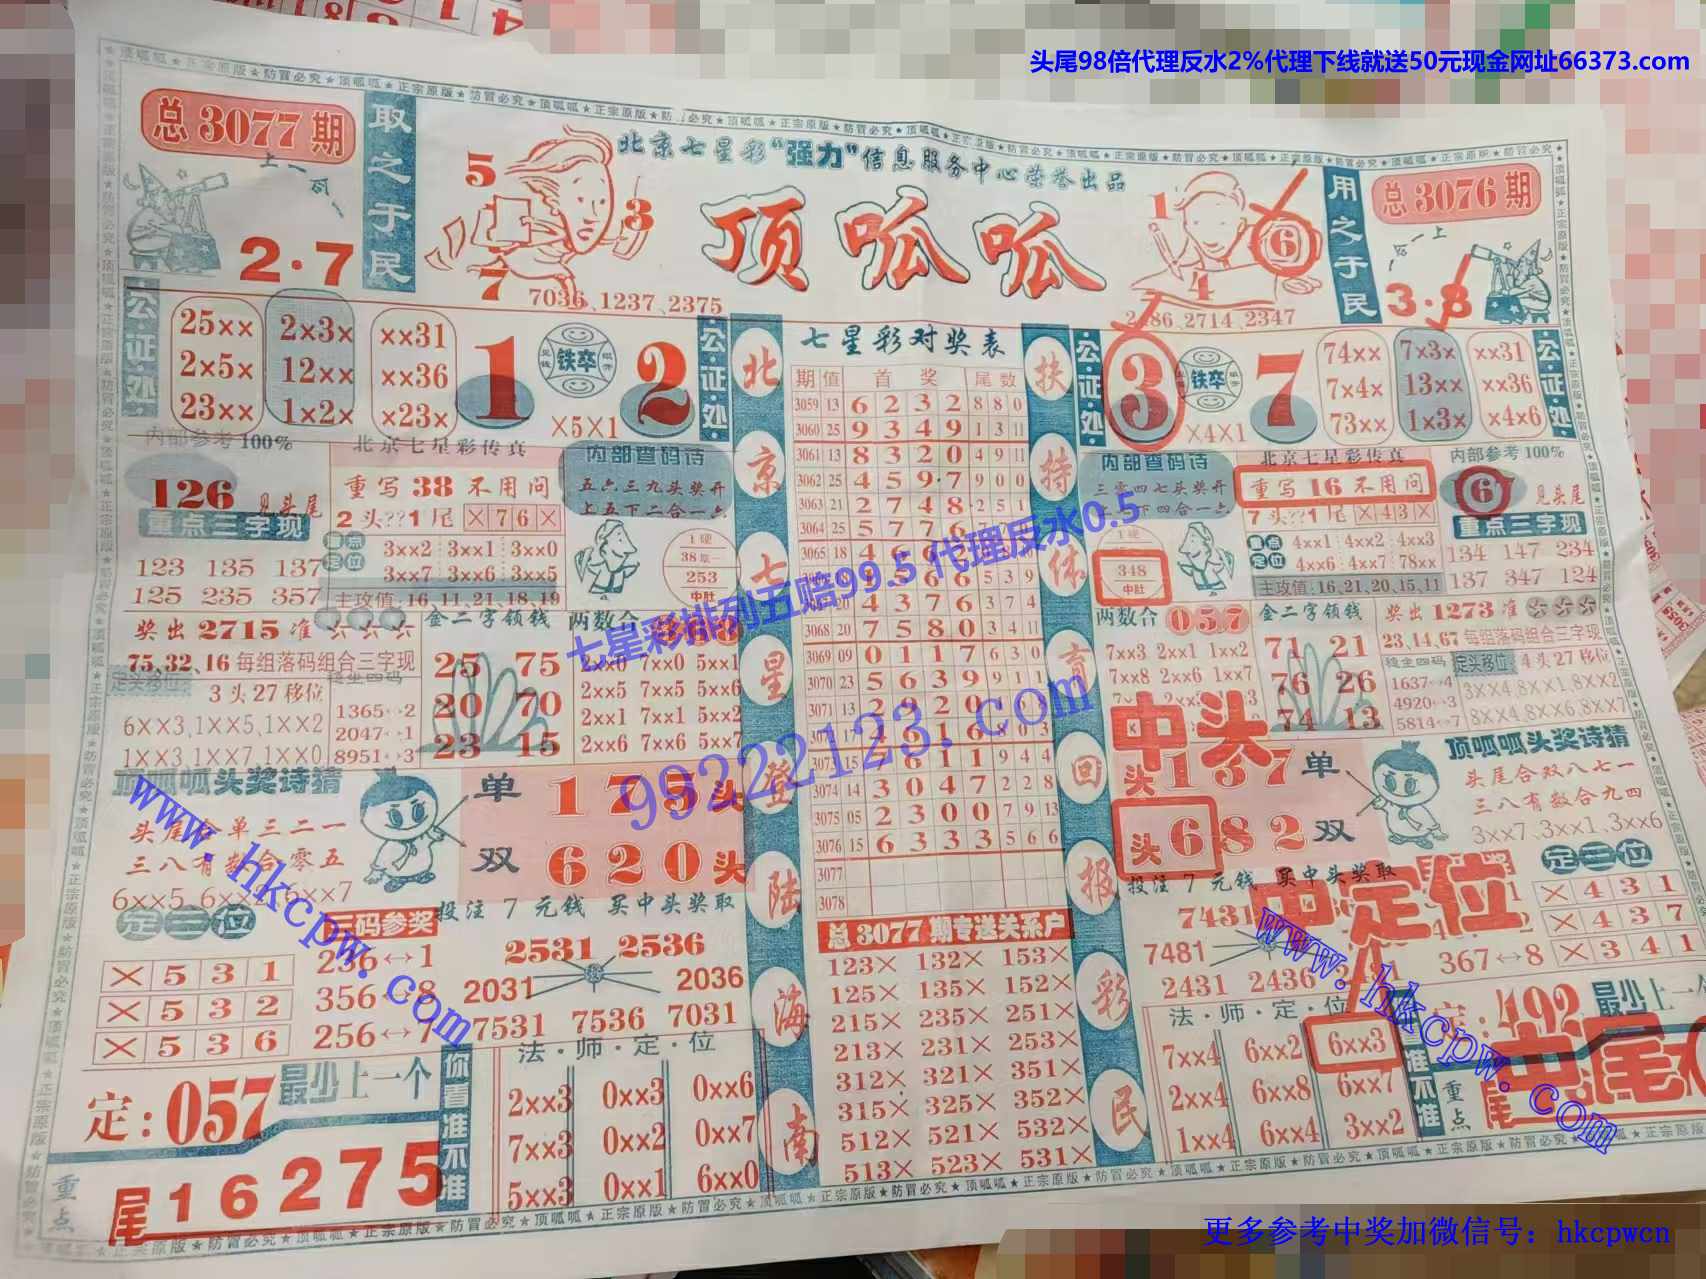 头尾98倍代理反水2%代理下线就送50元现金网址66373.com
总3077期
取之于民
北京七星彩“强力”信息服务中心荣誉出品
顶呱呱
用之于民
总3076期
2·7
5
3
7
7036、1237、2375
1
6
4
2186、2714、2347
3·8
公证处
25×× 2×3× ××31
2×5× 12×× ××36
23×× 1×2× ×23×
1 铁卒 2
×5×1
公证处
七星彩对奖表
期 值 首奖 尾数
3059 13 6 2 3 2 8 8 0
3060 25 9 3 4 9 1 3 11
3061 13 8 3 2 0 4 9 11
3062 25 4 5 9 7 9 0 0
3063 21 2 7 4 8 2 5 1
3067 20 4 3 7 6 3 7 4
3068 20 7 5 8 0 3 4 11
3069 09 0 1 1 7 6 3 0
3070 23 5 6 3 9 9 1
3074 14 3 0 4 7 2 2 8
3075 05 2 3 0 0 7 9 13
3076 15 6 3 3 3 5 6 6
3077
3078
北京七星登陆海南
扶持体育回报彩民
公证处
3 铁卒 7
×4×1
74×× 7×3× ××31
7×4× 13×× ××36
73×× 1×3× ×4×6
公证处
内部参考100%
126 见头尾
重点三字现
123 135 137
125 235 357
北京七星彩传真
重写38不用问
2头??1尾 ×76×
重点定位
3××2 3××1 3××0
3××7 3××6 3××5
主攻值:16,11,21,18,19
内部查码诗
五六三九头奖开
上五下二合一六
1硬
253
中肚
内部查码诗
三零四七头奖开
348
中肚
北京七星彩传真
重写16不用问
7头??1尾 ×43×
重点定位
4××1 4××2 4××3
4××6 4××7 78××
主攻值:16,21,20,15,11
内部参考100%
6 见头尾
重点三字现
134 147 234
137 347 124
奖出2715准
75,32,16每组落码组合三字现
定头移位
3头27移位
6××3,1××5,1××2
1××3,1××7,1××0
稳坐四码
1365↔2
2047↔1
8951↔3
金二字领钱
25 75
20 70
23 15
两数合
2××0 7××0 5××1
2××5 7××5 5××6
2××1 7××1 5××2
2××6 7××6 5××7
七星彩排列五赔99.5 代理反水0.5
99222123.com
两数合 057
7××3 2××1 1××2
7××8 2××6 1××7
金二字领钱
71 21
76 26
74 13
奖出1273准
23,14,67每组落码组合三字现
稳坐四码
1637↔4
4920↔3
5814↔7
定头移位
4头27移位
3××4,8××1,8××2
8××4,8××6,8××7
顶呱呱头奖诗猜
头尾合单三二一
三八有数合零五
6××5,6××2,6××7
单 175头
双 620头
投注7元钱 买中头奖取
中头
头137单
头682双
投注7元钱 买中头奖取
顶呱呱头奖诗猜
头尾合双八七一
三八有数合九四
3××7,3××1,3××6
定三位
×531
×532
×536
三码参奖
236↔1
356↔8
256↔7
2531 2536
2031 2036
7531 7536 7031
总3077期专送关系户
123× 132× 153×
125× 135× 152×
215× 235× 251×
213× 231× 253×
312× 321× 351×
315× 325× 352×
512× 521× 532×
513× 523× 531×
7431
7481
2431 2436
中定位
367↔8
定三位
×431
×437
×341
定:057
最少上一个
重点
尾16275
你看准不准
法·师·定·位
2××3 0××3 0××6
7××3 0××2 0××7
5××3 0××1 6××0
法·师·定·位
7××4 6××2 6××3
2××4 6××8 6××7
1××4 6××4 3××2
定:492
最少上一个
重点
中尾
www.hkcpw.com
www.hkcpw.com
更多参考中奖加微信号：hkcpwcn